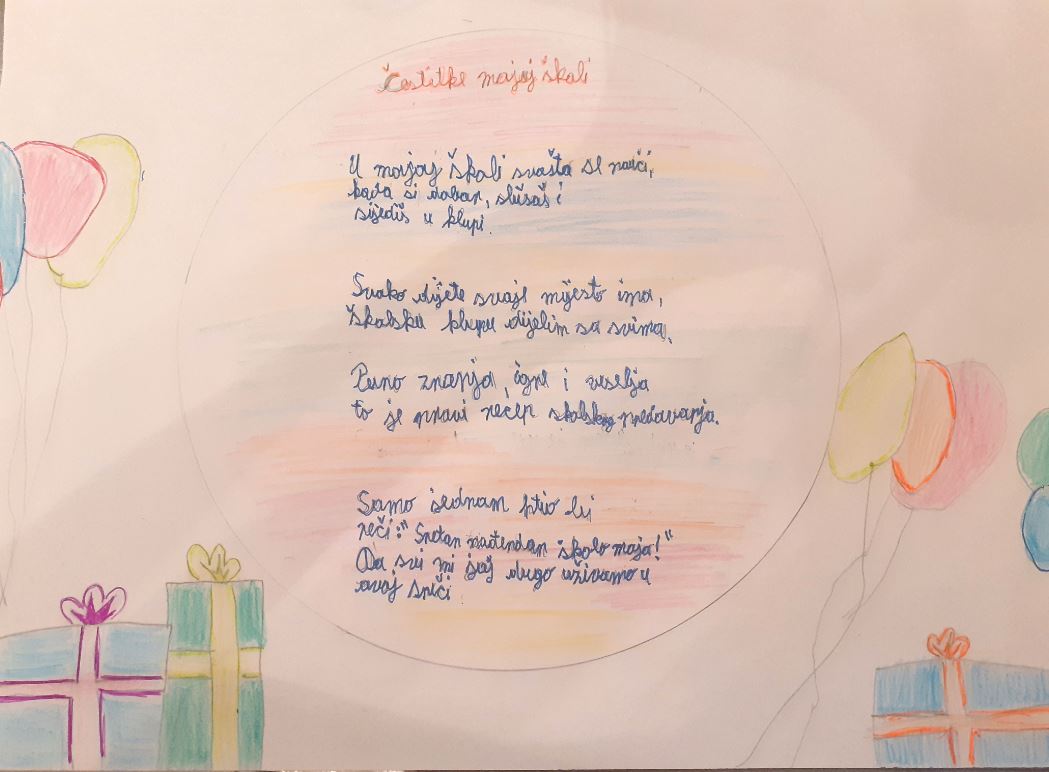 Čestitke mojoj školi
U mojoj školi svašta se nauči,
kada si dobar, slušaš i
sijediš u klupi.
Svako dijete svoje mijesto ima,
školsku klupu dijelim sa svima.
Puno znanja, igre i veselja
to je pravi recep školskog predavanja.
Samo jednam htio bi
reči: "Sretan rođendan školo moja!"
Da svi mi još dugo uživamo u
ovoj sreči